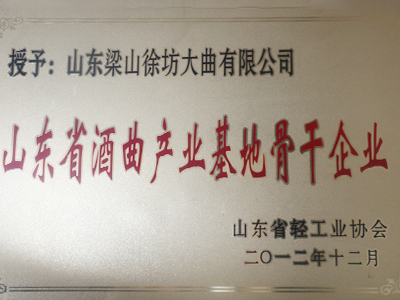 授予：山东梁山徐坊大曲有限公司
山东省酒曲产业基地骨干企业
山东省轻工业协会
二〇一二年十二月